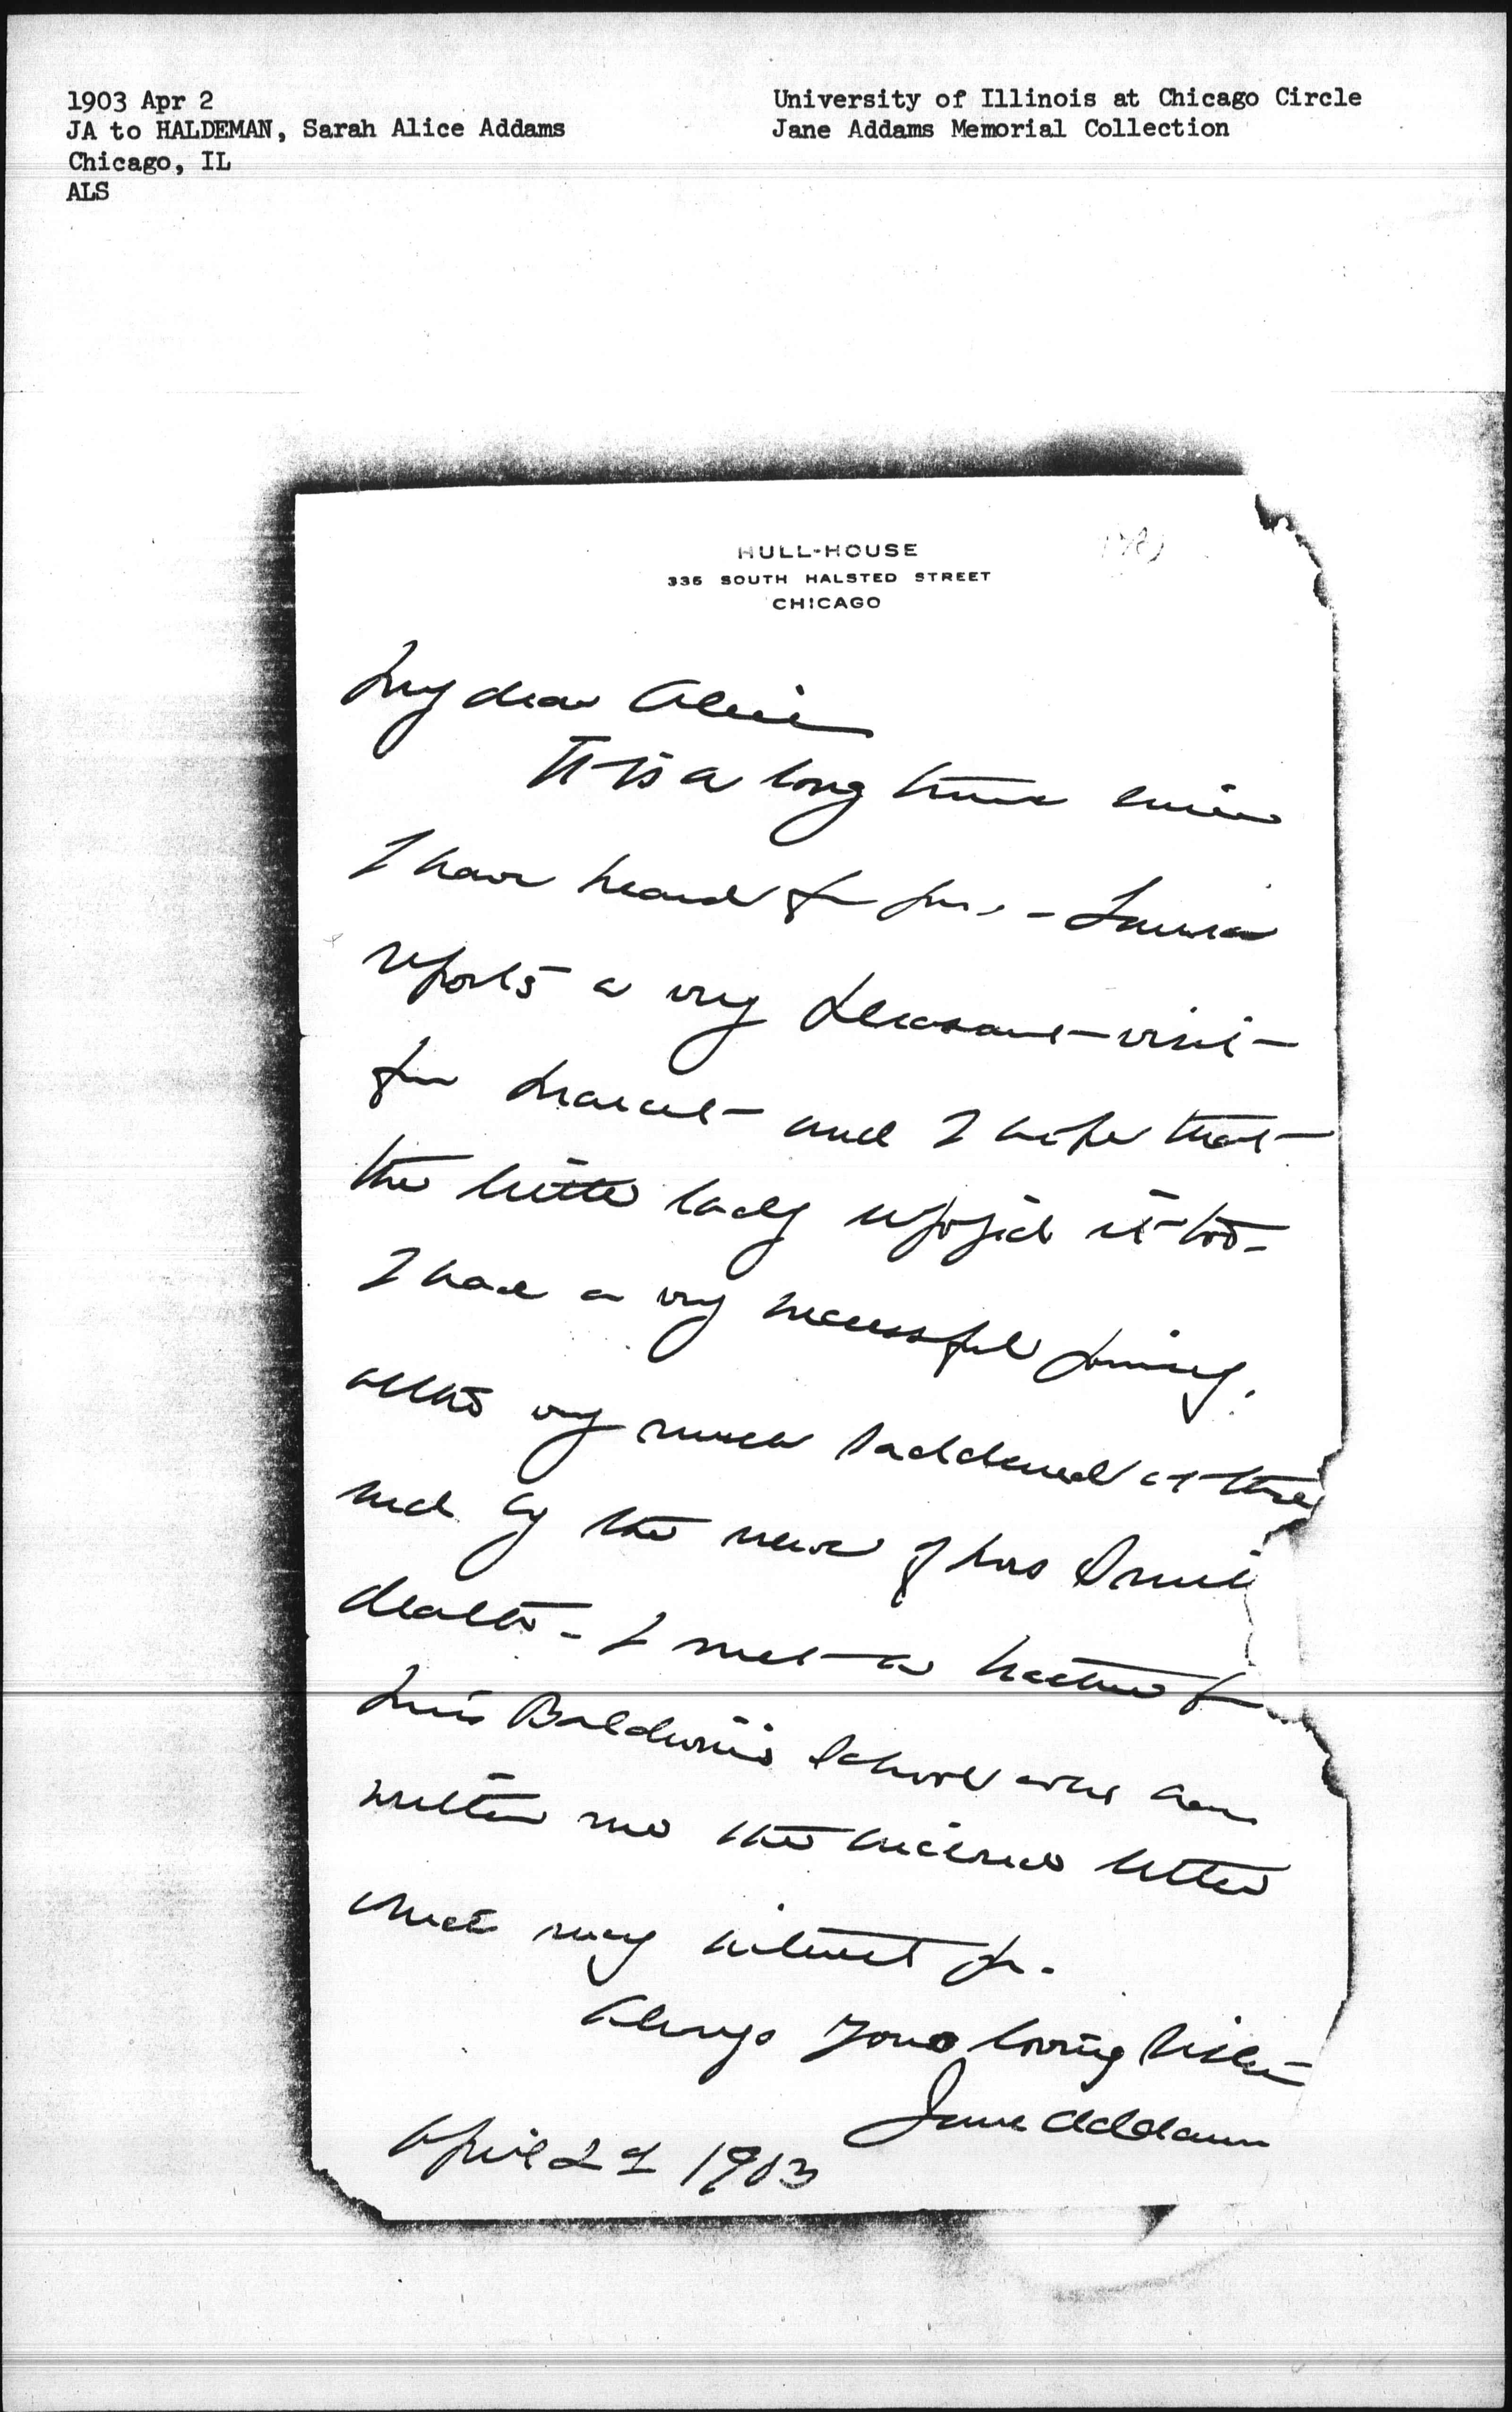 1903 Apr 2
JA to HALDEMAN, Sarah Alice Addams
Chicago, IL
ALS
University of Illinois at Chicago Circle
Jane Addams Memorial Collection
HULL-HOUSE
335 SOUTH HALSTED STREET
CHICAGO
My dear Alice
It is a long time since
I have heard from you - Laura
reports a very pleasant visit
from Marcet and I hope that
the little lady enjoyed it too -
I had a very successful journey,
altho very much saddened at the
end by the news of Mrs
death - I met a teacher from
Miss Baldwin's school who has
written me the enclosed letter
which may interest you.
Always your loving sister
Jane Addams
April 2d 1903